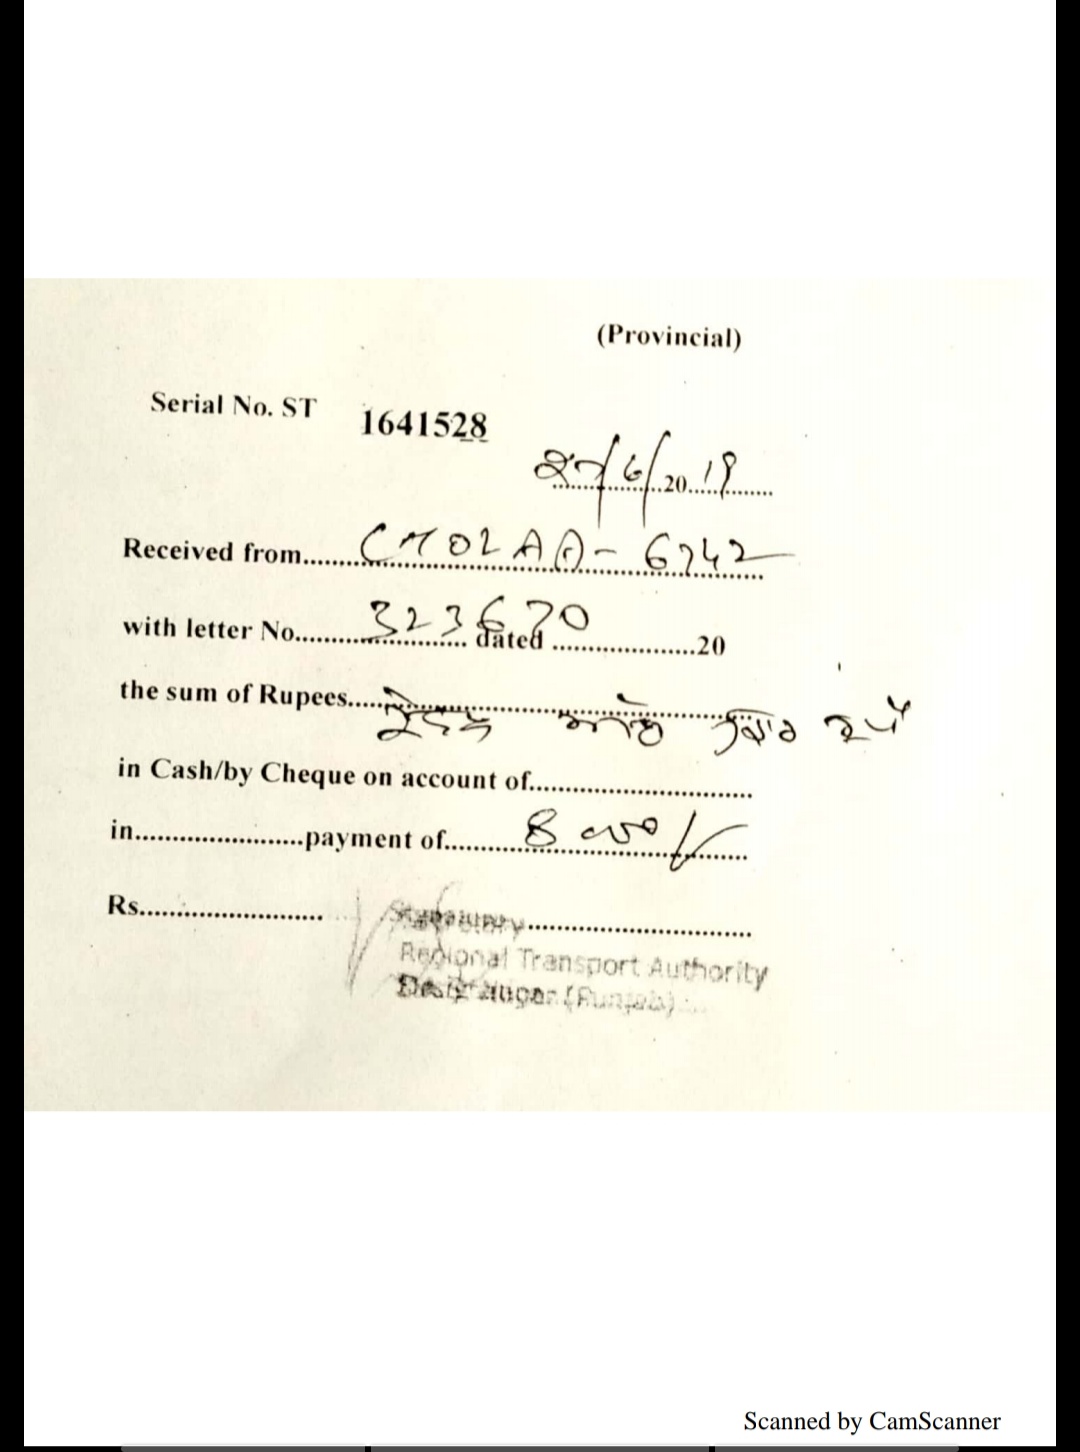 (Provincial)
Serial No. ST 1641528
27/6/20 19
Received from......CH02AA-6742
with letter No......323670 dated ..................20
the sum of Rupees..... ਕੇਵਲ ਅੱਠ ਹਜ਼ਾਰ ਰੁਪਏ
in Cash/by Cheque on account of..............................
in.......................payment of......8000/-
Rs.........................
Secretary
Regional Transport Authority
(Punjab)
Scanned by CamScanner